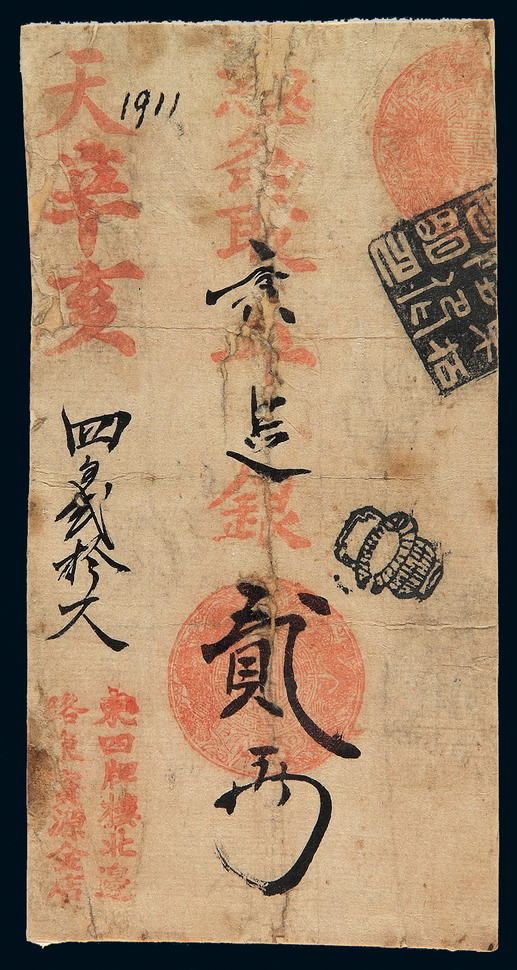 憑条取京平足銀貳兩
1911
天辛亥
四百貳拾
東四牌樓北邊
路東寶源金店